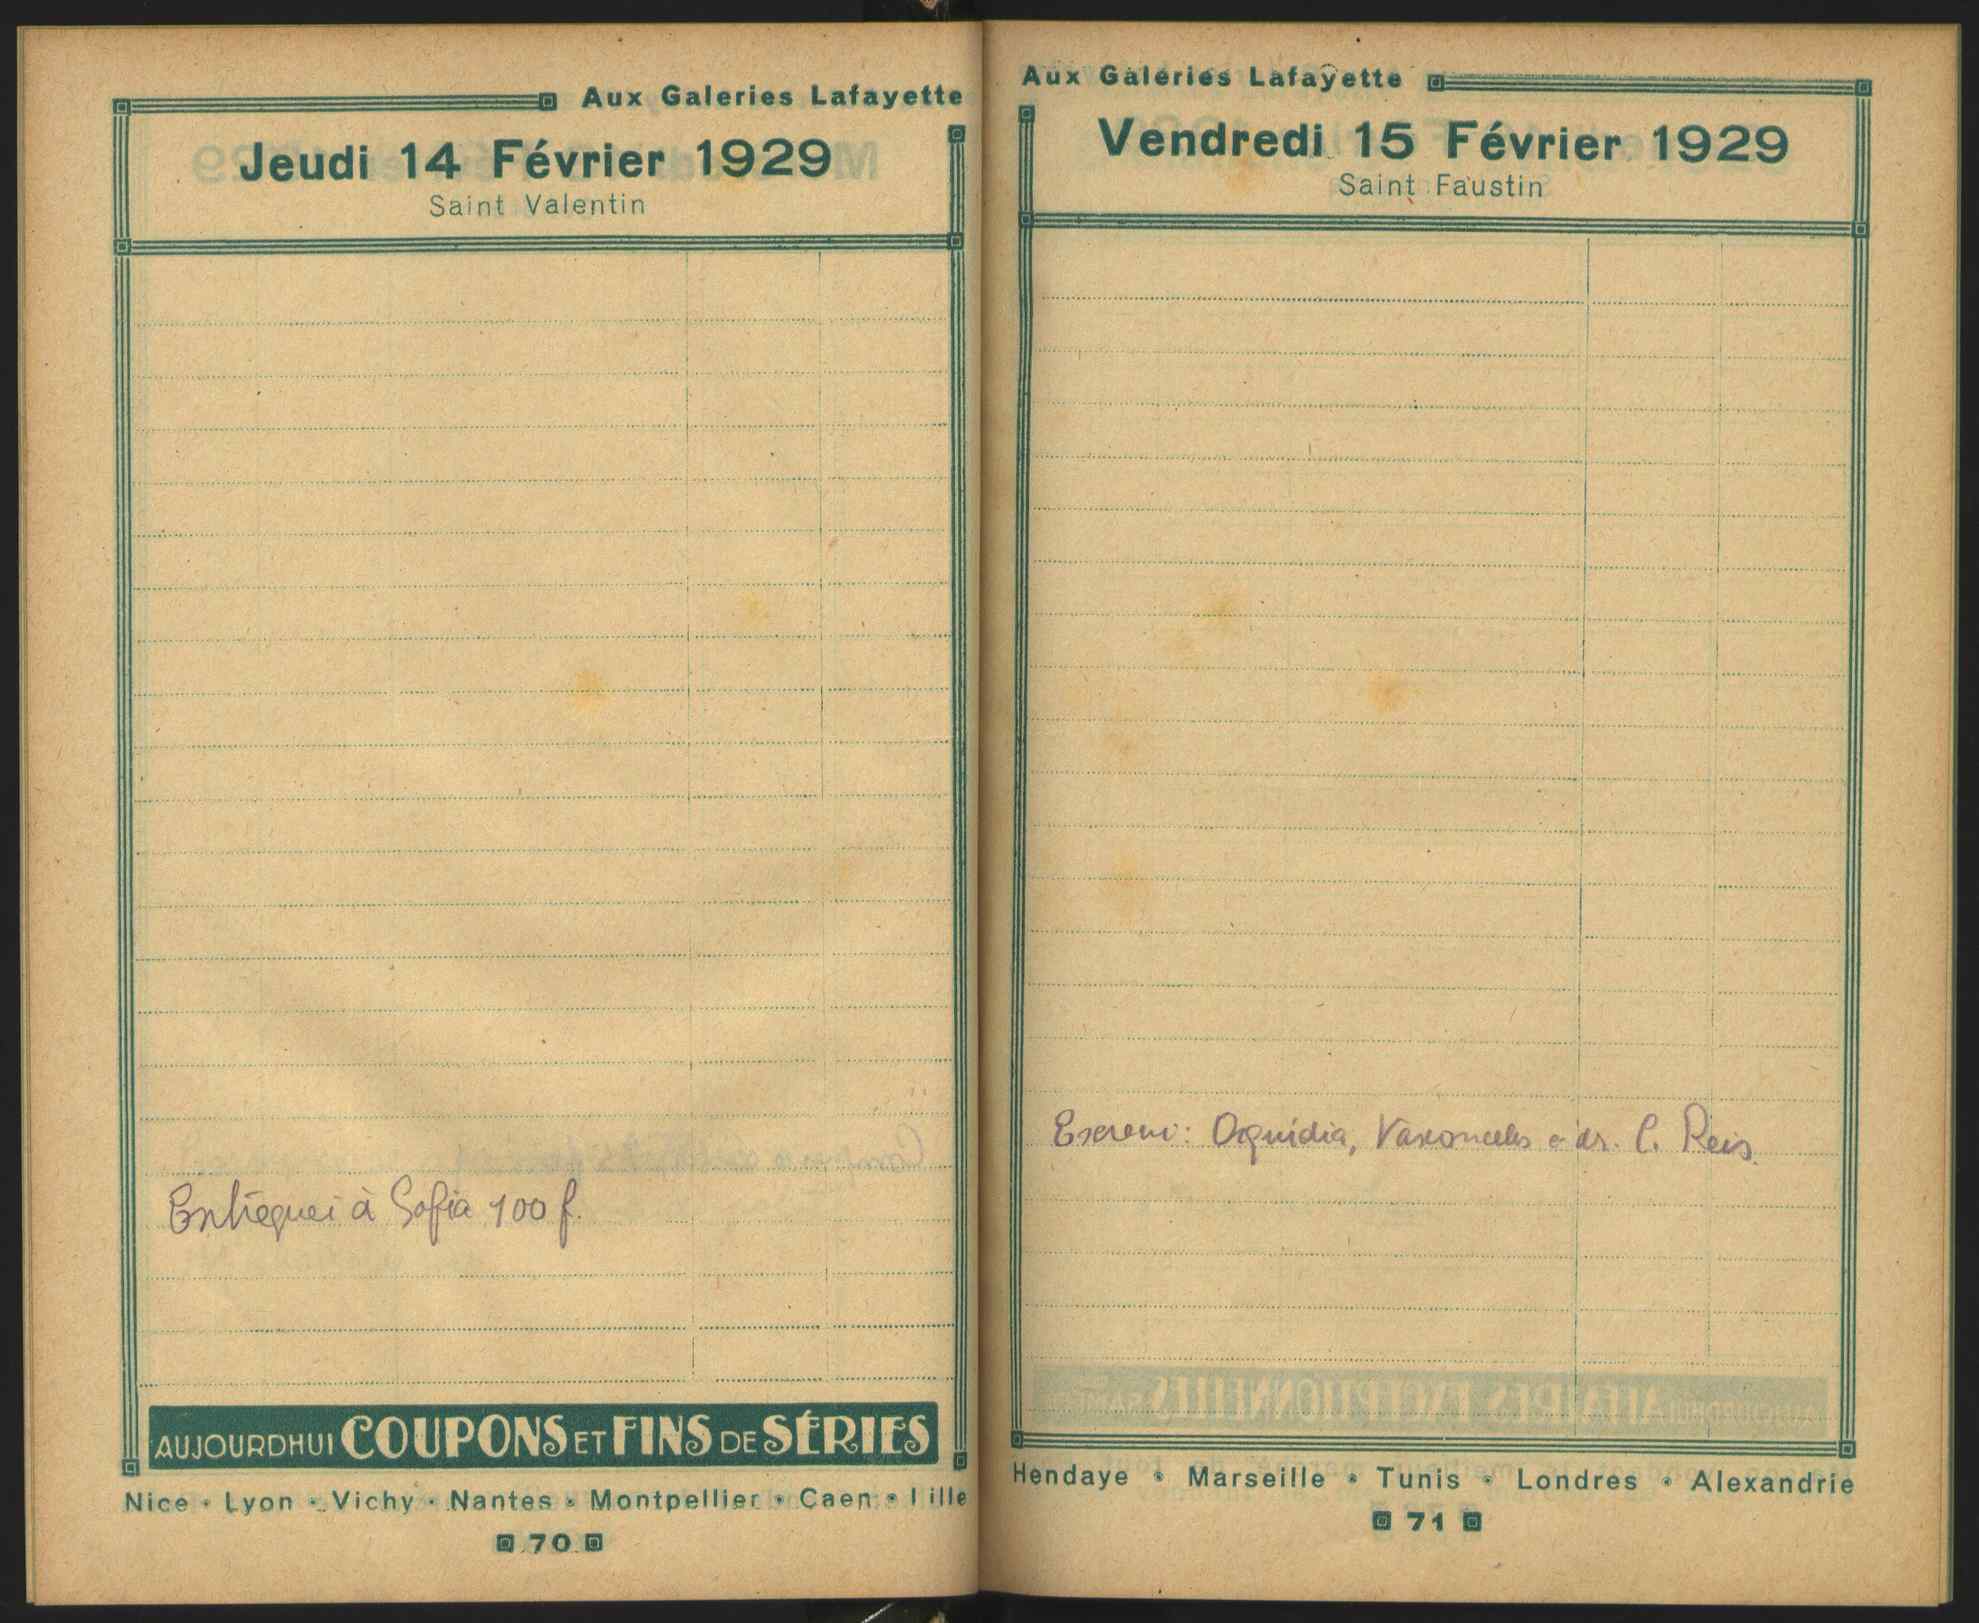 Aux Galeries Lafayette
Jeudi 14 Février 1929
Saint Valentin
Entreguei à Sofia 100 f.
AUJOURDHUI COUPONS ET FINS DE SÉRIES
Nice • Lyon • Vichy • Nantes • Montpellier • Caen • Lille
70
Aux Galeries Lafayette
Vendredi 15 Février 1929
Saint Faustin
Escrevi: Orquídia, Vasconcelos e dr. C. Reis.
Hendaye • Marseille • Tunis • Londres • Alexandrie
71